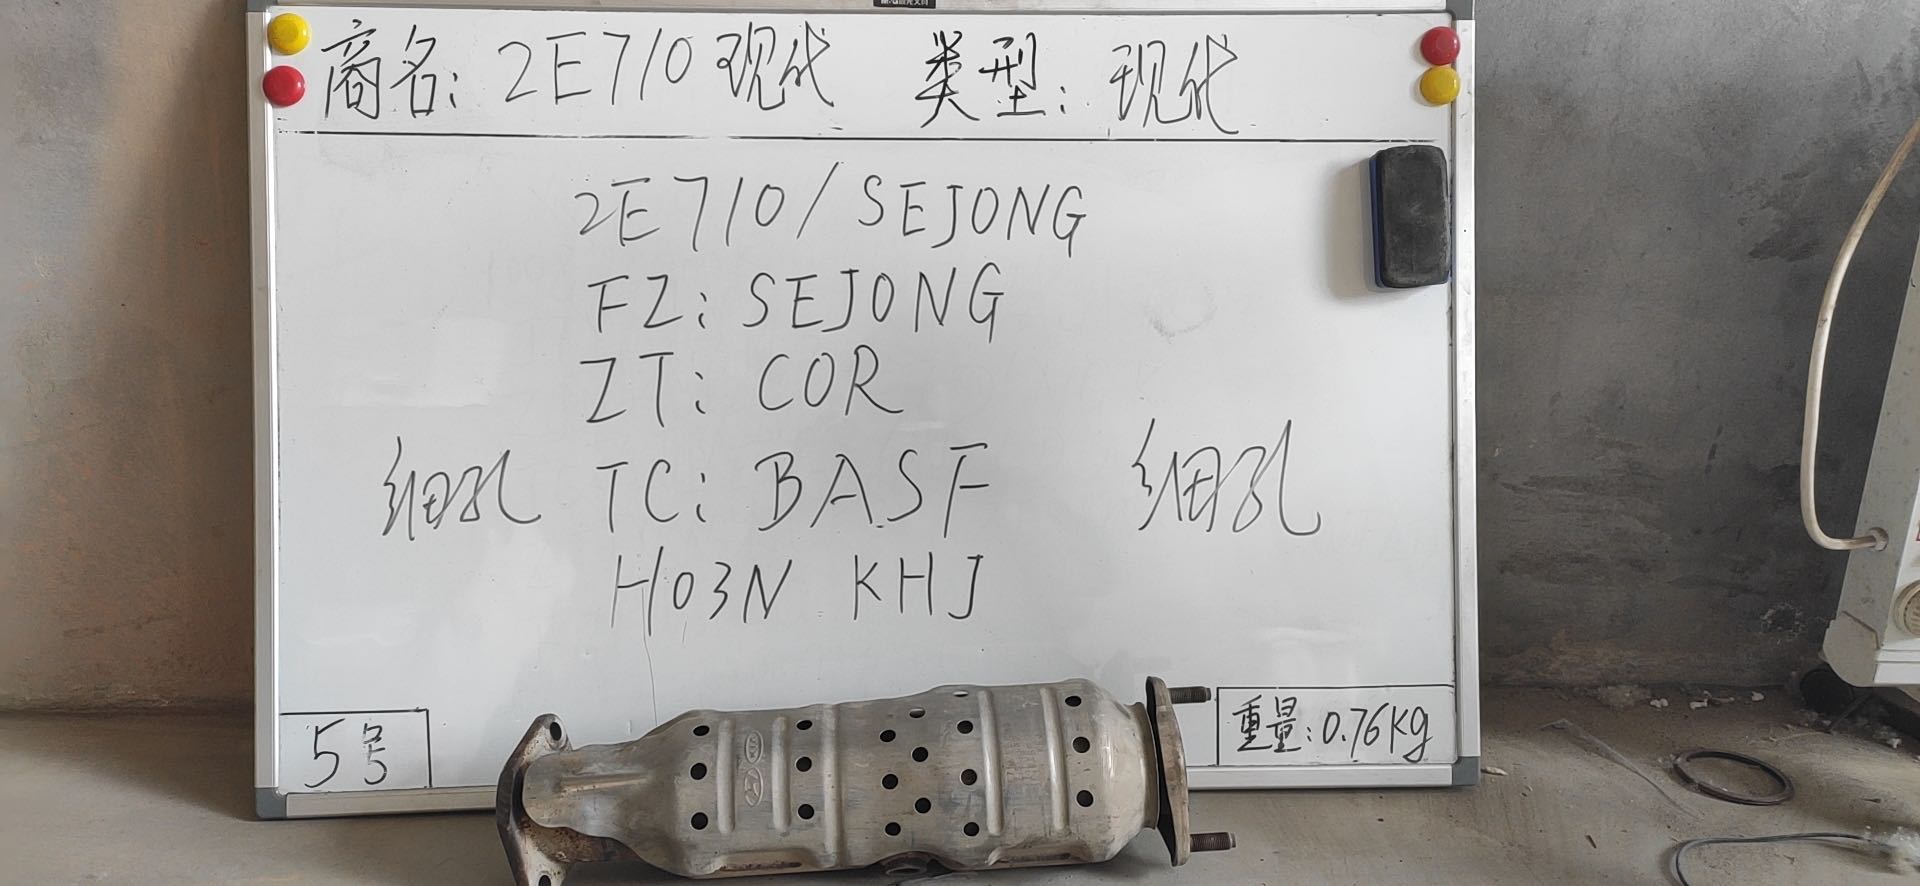 商名: 2E710现代 类型: 现代
2E710/SEJONG
FZ: SEJONG
ZT: COR
细孔 TC: BASF 细孔
H03N KHJ
5号
重量: 0.76kg